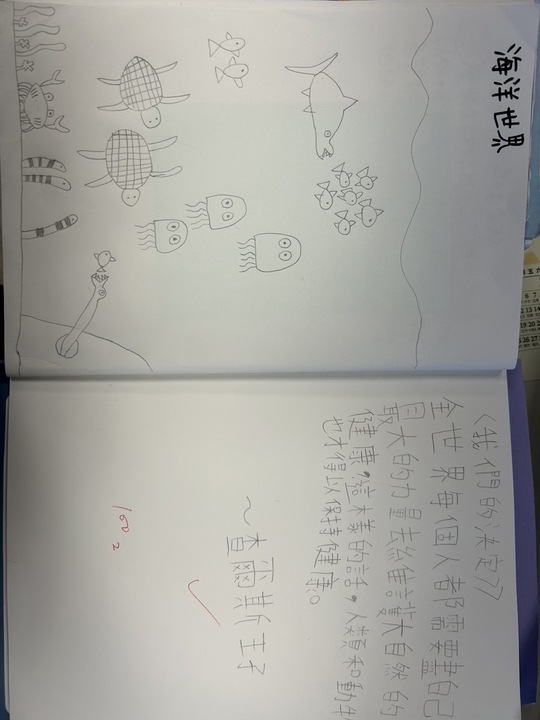 海洋世界
《我們的決定》
全世界每個人都需要盡自己
最大的力量去維護大自然的
健康,這樣的話,人類和動物
也才得以保持健康。
~查爾斯王子
100
2